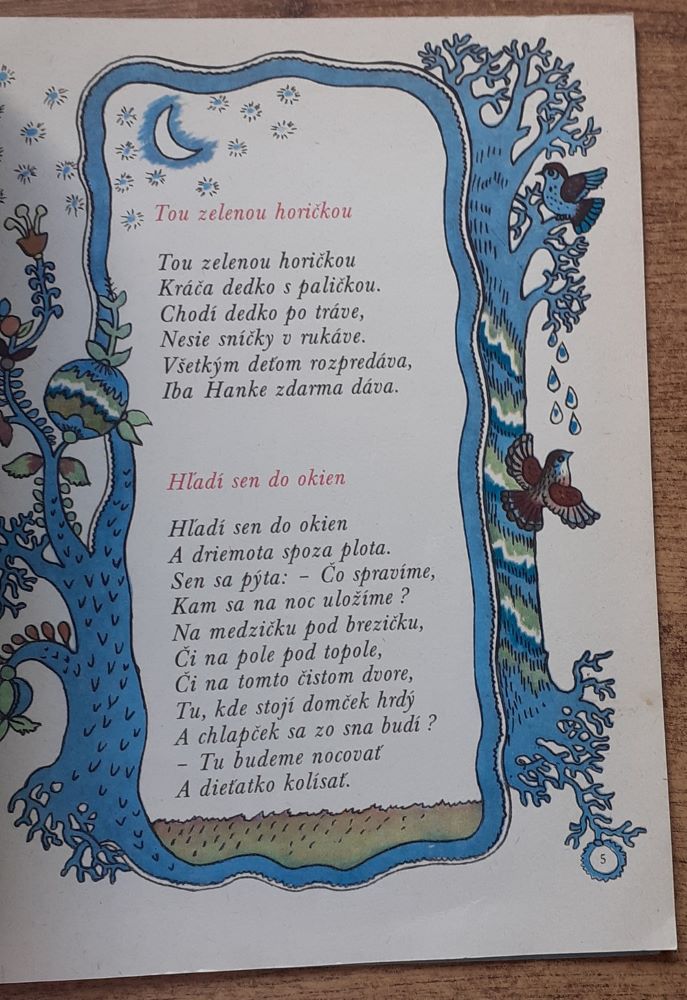 Tou zelenou horičkou
Tou zelenou horičkou
Kráča dedko s paličkou.
Chodí dedko po tráve,
Nesie sníčky v rukáve.
Všetkým deťom rozpredáva,
Iba Hanke zdarma dáva.
Hľadí sen do okien
Hľadí sen do okien
A driemota spoza plota.
Sen sa pýta: – Čo spravíme,
Kam sa na noc uložíme ?
Na medzičku pod brezičku,
Či na pole pod topole,
Či na tomto čistom dvore,
Tu, kde stojí domček hrdý
A chlapček sa zo sna budí ?
– Tu budeme nocovať
A dieťatko kolísať.
5